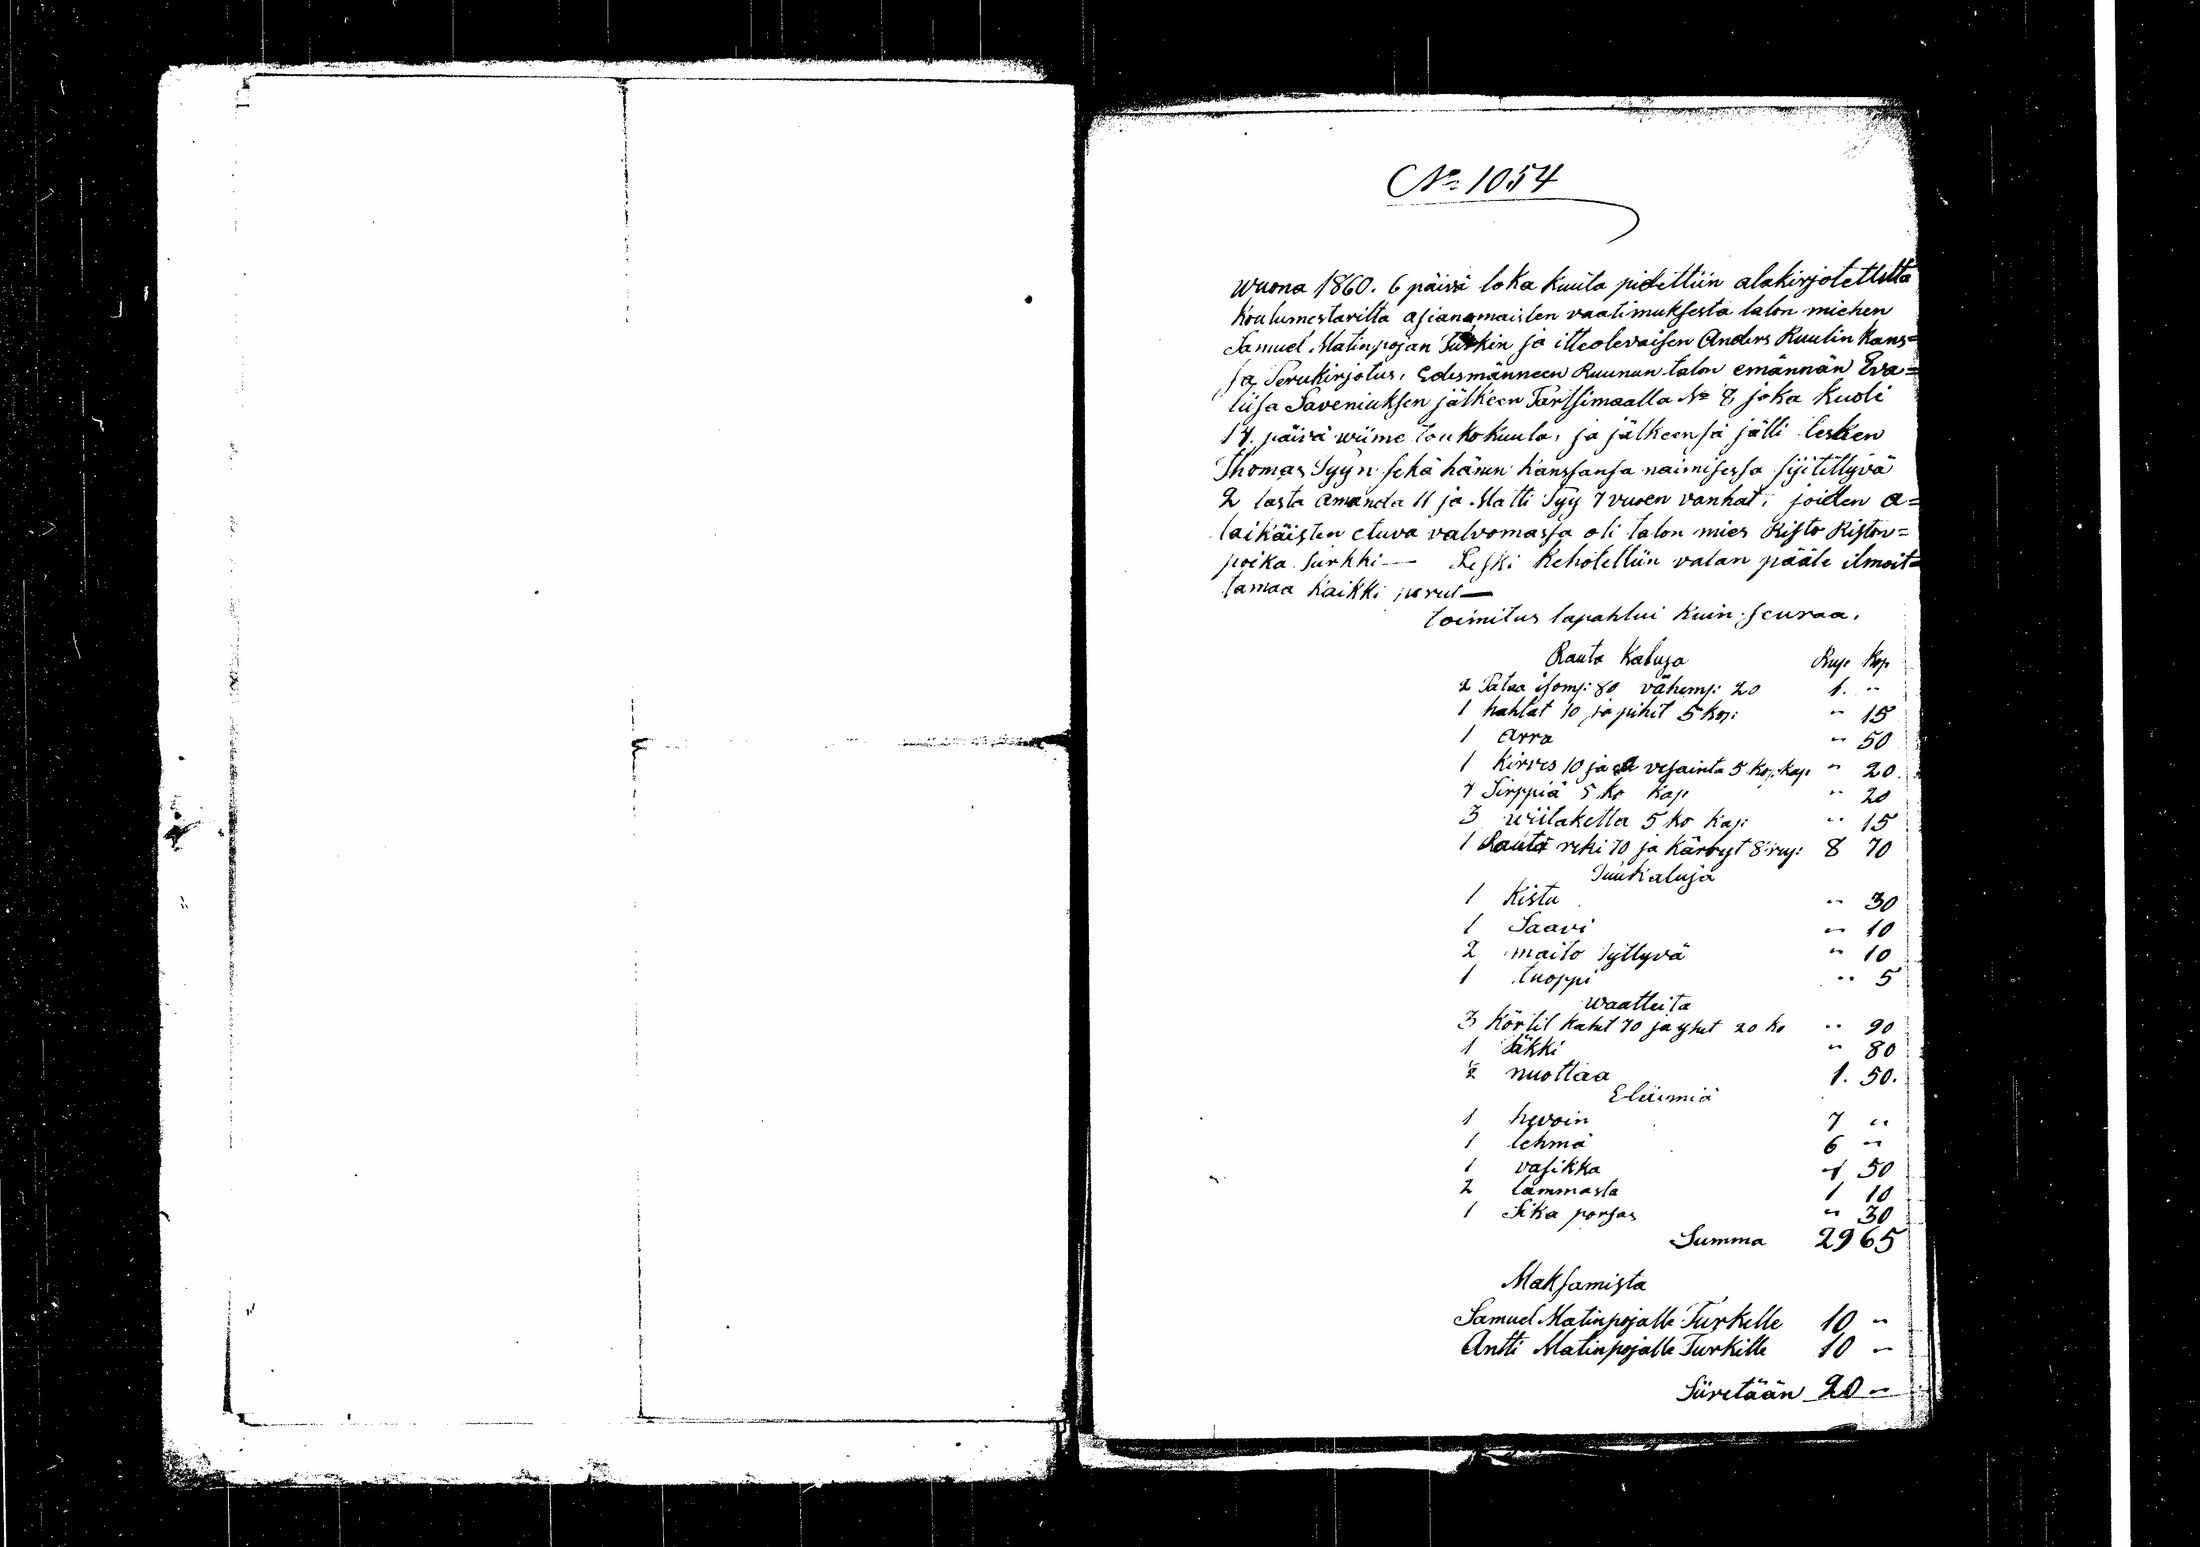 No 1054
Wuona 1860. 6 päivä loka kuuta pidettiin alakirjotetulta
koulumestarilta asianomaisten vaatimuksesta talon miehen
Samuel Matinpojan Turkin ja itteolevaisen Anders Ruulin kans=
sa Perukirjotus, Edesmänneen Ruunun talon emännän Eva=
liisa Saveniuksen jälkeen Tartsimaalla No 8, joka kuoli
14. päivä wiime toukokuuta, ja jälkeensä jätti lesken
Thomas Tyyn sekä hänen kanssansa naimisessa sijitettyvä
2 lasta Amanda 11 ja Matti Tyy 7 vuoen vanhat, joiden a=
laikäisten etuva valvomassa oli talon mies Risto Riston=
poika Turkki — Leski kehotettiin valan pääle ilmoit=
tamaa kaikki perut —
toimitus tapahtui kuin seuraa.
Rauta kaluja Rup Kop
2 Pataa isomp: 80 vähemp: 20 1. "
1 hahlat 10 ja pihit 5 kop: " 15
1 Arra " 50
1 kirves 10 ja 2 vesainta 5 kop. kap " 20
4 Sirppiä 5 ko kap " 20
3 wiilaketta 5 ko kap: " 15
1 Rauta reki 70 ja kärryt 8 rup: 8 70
Puukaluja
1 Kistu " 30
1 Saavi " 10
2 maito Pyttyvä " 10
1 tuoppi " 5
Waatteita
3 körtit kahet 70 ja yhet 20 ko " 90
1 Säkki " 80
½ nuottaa 1. 50.
Eläimiä
1 hevoin 7 "
1 lehmä 6 "
1 vasikka 1 50
2 lammasta 1 10
1 Sika porsas " 30
Summa 29 65
Maksamista
Samuel Matinpojalle Turkelle 10 "
Antti Matinpojalle Turkille 10 "
Siiretään 20 "